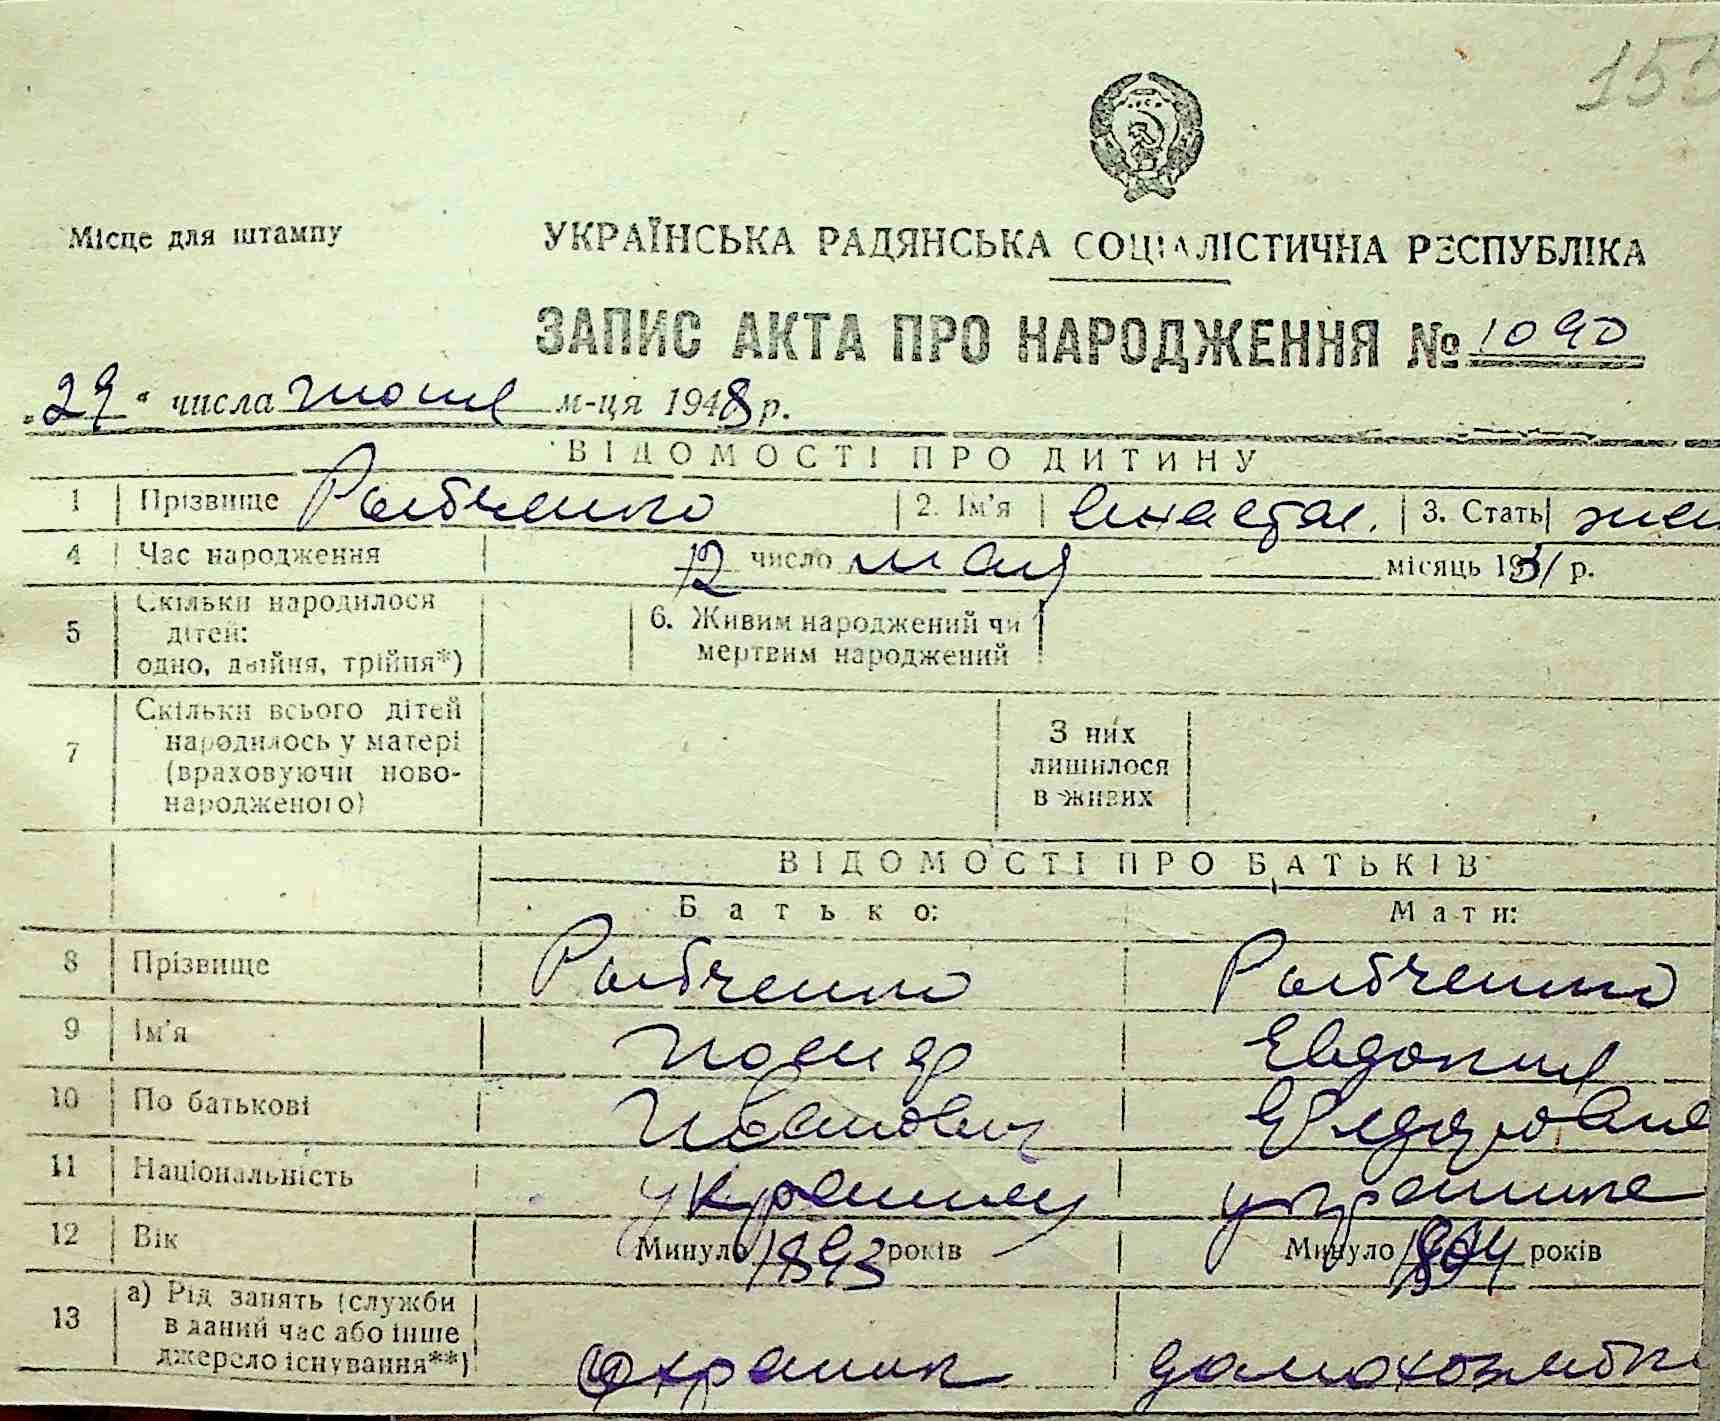 153
Місце для штампу
УКРАЇНСЬКА РАДЯНСЬКА СОЦІАЛІСТИЧНА РЕСПУБЛІКА
ЗАПИС АКТА ПРО НАРОДЖЕННЯ № 1090
„29“ числа июня м-ця 1948 р.
ВІДОМОСТІ ПРО ДИТИНУ
1 Прізвище Рыбченко 2. Ім'я 3. Стать жен
4 Час народження 12 число мая місяць 1931 р.
5 Скільки народилося дітей: одно, двійня, трійня*) 6. Живим народжений чи мертвим народжений
7 Скільки всього дітей народилось у матері (враховуючи новонародженого) З них лишилося в живих
ВІДОМОСТІ ПРО БАТЬКІВ
Батько: Мати:
8 Прізвище Рыбченко Рыбченко
9 Ім'я Евдокия
10 По батькові Иванович Федоровна
11 Національність украинец украинка
12 Вік Минуло 1893 років Минуло 1894 років
13 а) Рід занять (служби в даний час або інше джерело існування**) охраник домохозяйка